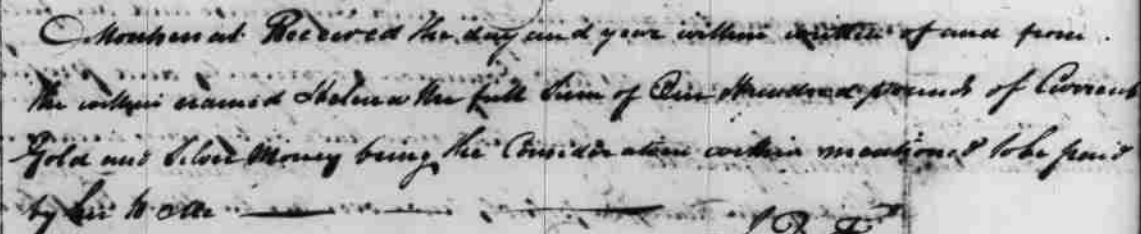 Montserrat Received the day and year within written of and from
the within named Helena the full Sum of One Hundred pounds of Current
Gold and Silver Money being the Consideration within mentioned to be paid
by her to Me